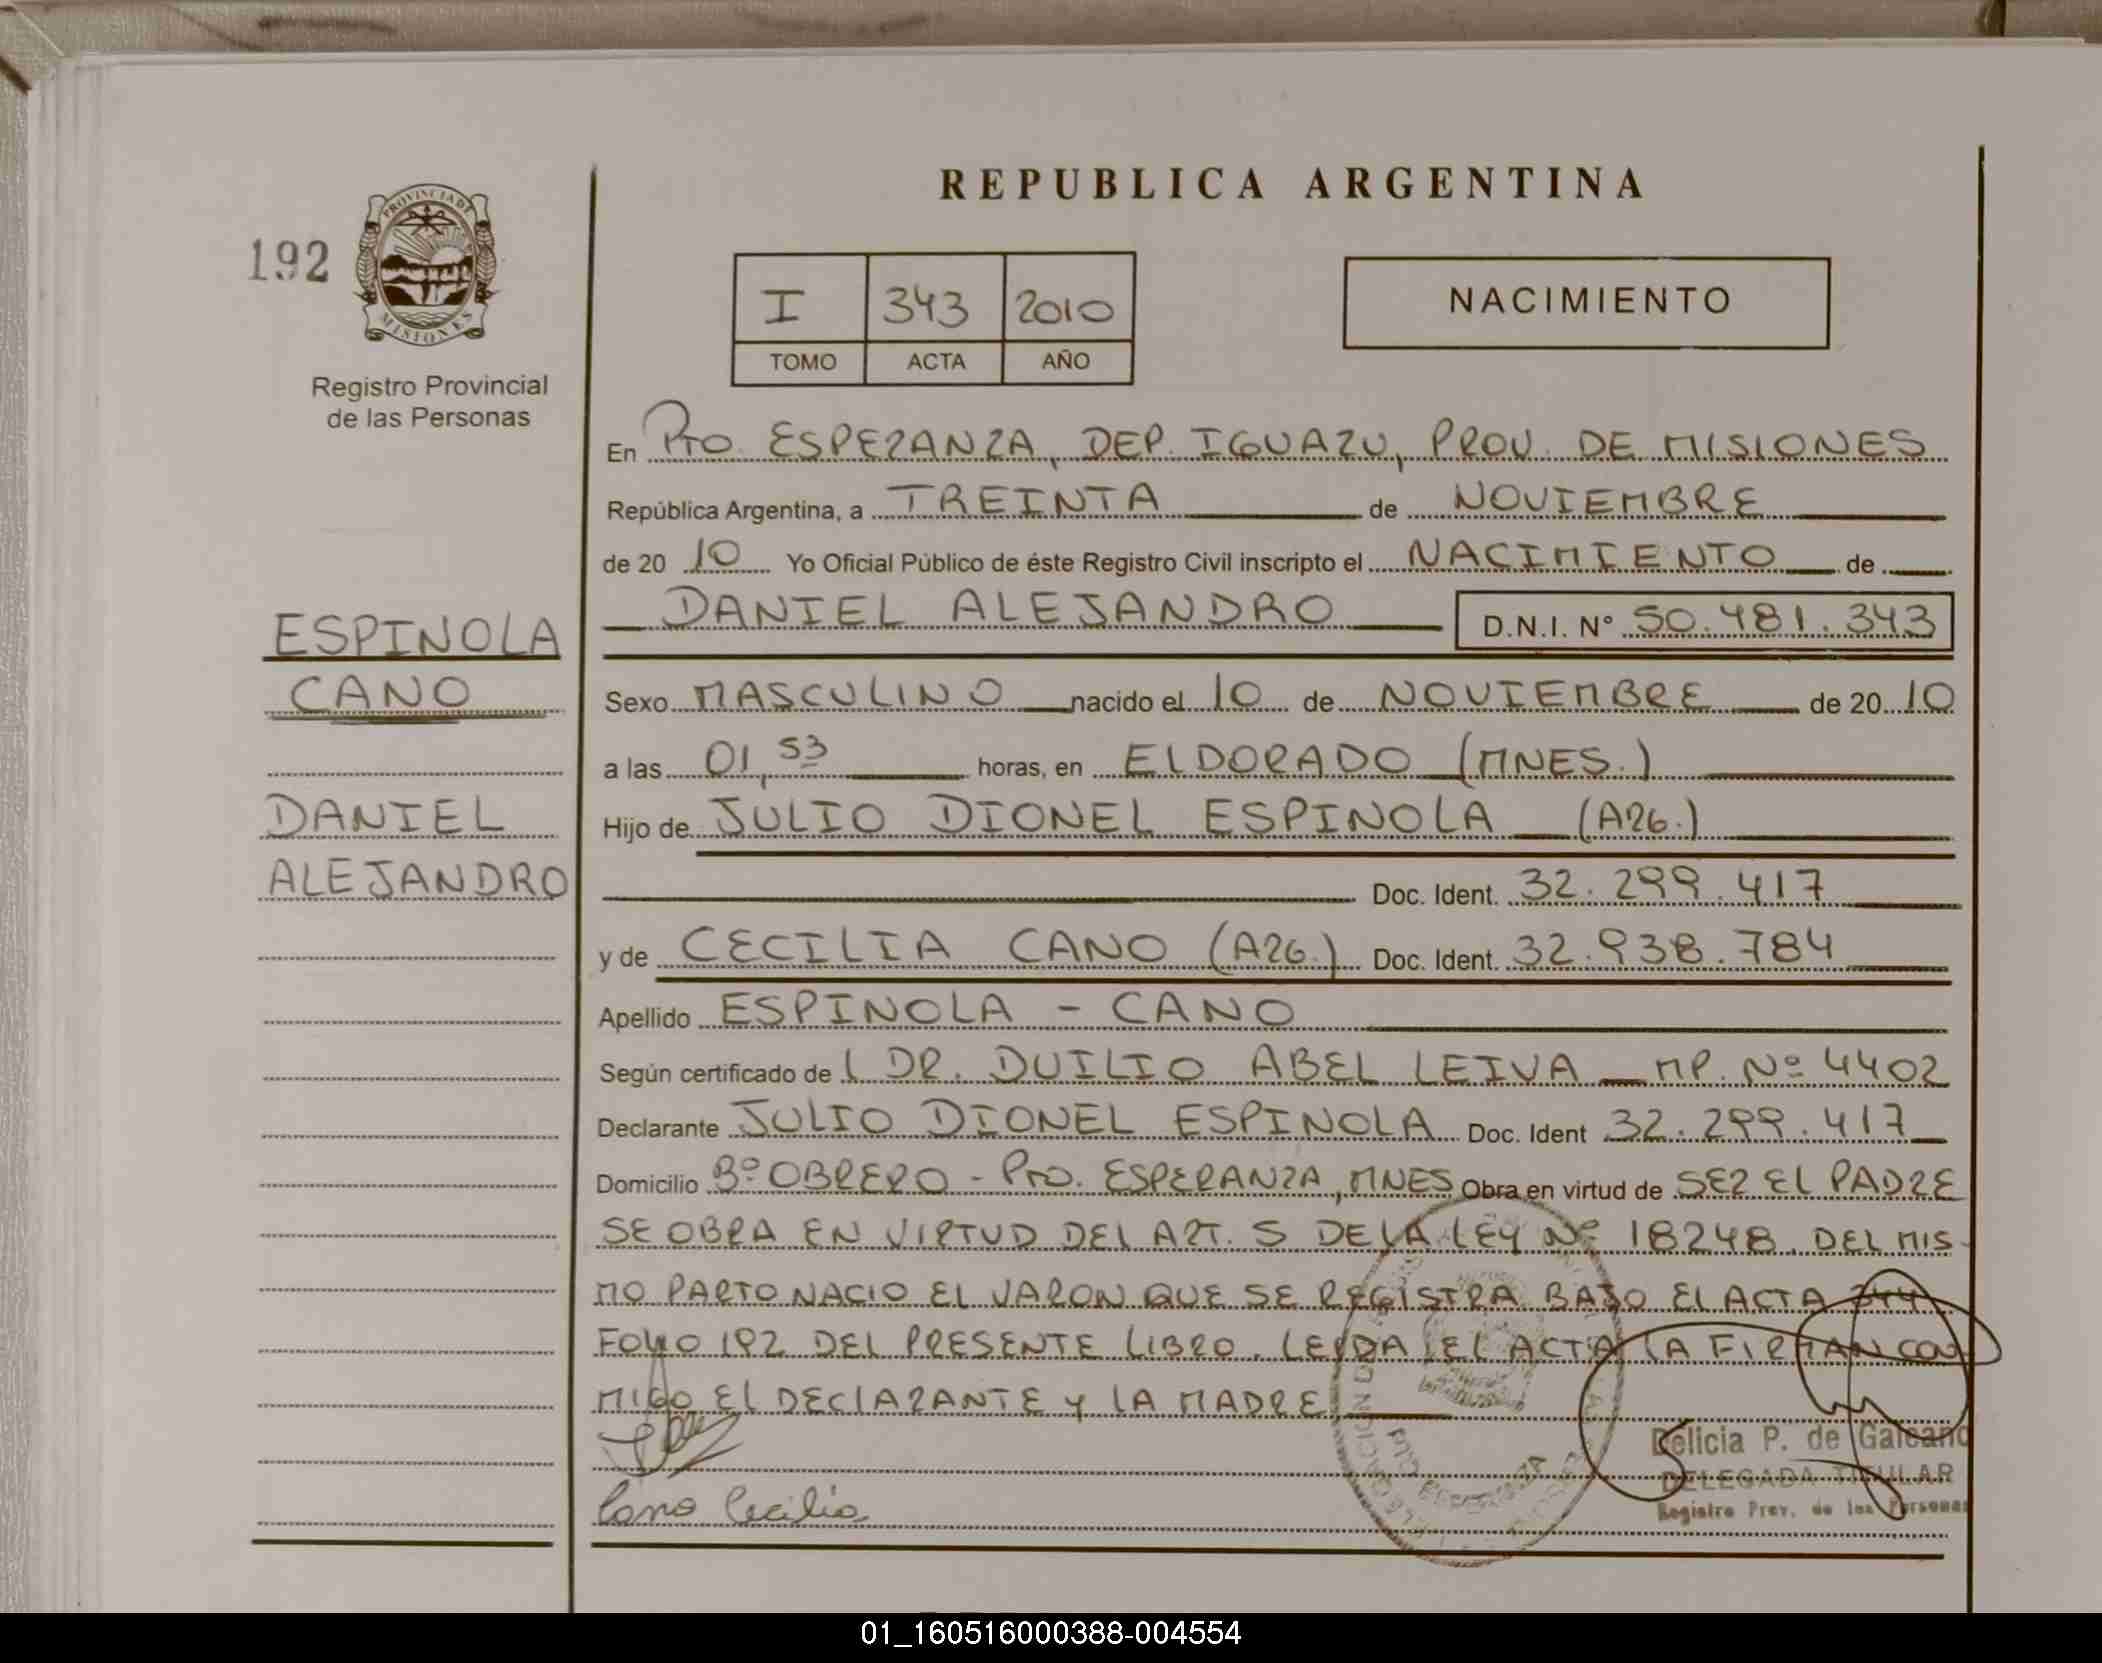 REPUBLICA ARGENTINA
192
PROVINCIA DE
MISIONES
Registro Provincial
de las Personas
I 343 2010
TOMO ACTA AÑO
NACIMIENTO
En Pto. ESPERANZA, DEP. IGUAZU, PROV. DE MISIONES
República Argentina, a TREINTA de NOVIEMBRE
de 20 10 Yo Oficial Público de éste Registro Civil inscripto el NACIMIENTO de
DANIEL ALEJANDRO D.N.I. Nº 50.481.343
ESPINOLA
CANO
DANIEL
ALEJANDRO
Sexo MASCULINO nacido el 10 de NOVIEMBRE de 20 10
a las 01,53 horas, en ELDORADO (MNES.)
Hijo de JULIO DIONEL ESPINOLA (ARG.)
Doc. Ident. 32.299.417
y de CECILIA CANO (ARG.) Doc. Ident. 32.938.784
Apellido ESPINOLA - CANO
Según certificado de l DR. DUILIO ABEL LEIVA MP. Nº 4402
Declarante JULIO DIONEL ESPINOLA Doc. Ident 32.299.417
Domicilio Bº OBRERO - Pto. ESPERANZA, MNES Obra en virtud de SER EL PADRE
SE OBRA EN VIRTUD DEL ART. 5 DE LA LEY Nº 18248. DEL MIS-
MO PARTO NACIO EL VARON QUE SE REGISTRA BAJO EL ACTA 344
FOLIO 192 DEL PRESENTE LIBRO. LEIDA EL ACTA LA FIRMAN CON
MIGO EL DECLARANTE Y LA MADRE
Cano Cecilia
Delicia P. de Galeano
DELEGADA TITULAR
Registro Prov. de las Personas
01_160516000388-004554